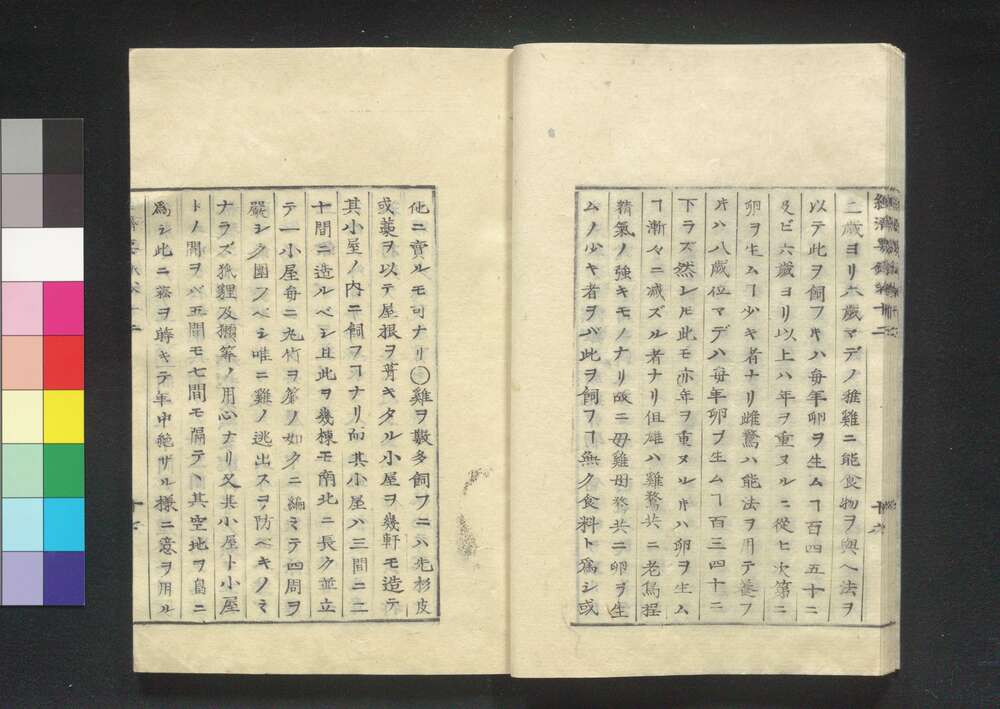 經濟要錄卷十二 十六
二歲ヨリ六歲マデノ雌雞ニ能食物ヲ與ヘ法ヲ
以テ此ヲ飼フキハ每年卵ヲ生ムヿ百四五十ニ
及ビ六歲ヨリ以上ハ年ヲ重ヌルニ從ヒ次第ニ
卵ヲ生ムヿ少キ者ナリ雌鶩ハ能法ヲ用テ養フ
𪜈ハ八歲位マデハ每年卵ヲ生ムヿ百三四十ニ
下ラズ然レ𪜈此モ亦年ヲ重ヌル𪜈ハ卵ヲ生ム
ヿ漸々ニ减ズル者ナリ但雄ハ雞鶩共ニ老焉程
精氣ノ強キモノナリ故ニ母雞母鶩共ニ卵ヲ生
ムノ少キ者ヲバ此ヲ飼ヲヿ無ク食料ト爲シ或
他ニ賣ルモ可ナリ○雞ヲ數多飼フニハ先杉皮
或藁ヲ以テ屋根ヲ葺キタル小屋ヲ幾軒モ造テ
其小屋ノ內ニ飼フヿナリ而其小屋ハ三間ニ二
十間ニ造ルベシ且此ヲ幾棟モ南北ニ長ク並立
テ一小屋每ニ丸竹ヲ簀ノ如クニ編ミテ四周ヲ
嚴シク圍フベシ唯ニ雞ノ逃出スヲ防ベキノミ
ナラズ狐貍及獺等ノ用心ナリ又其小屋ト小屋
トノ間ヲバ五間モ七間モ隔テヽ其空地ヲ畠ニ
爲シ此ニ菘ヲ蒔キテ年中絕ザル樣ニ意ヲ用ル